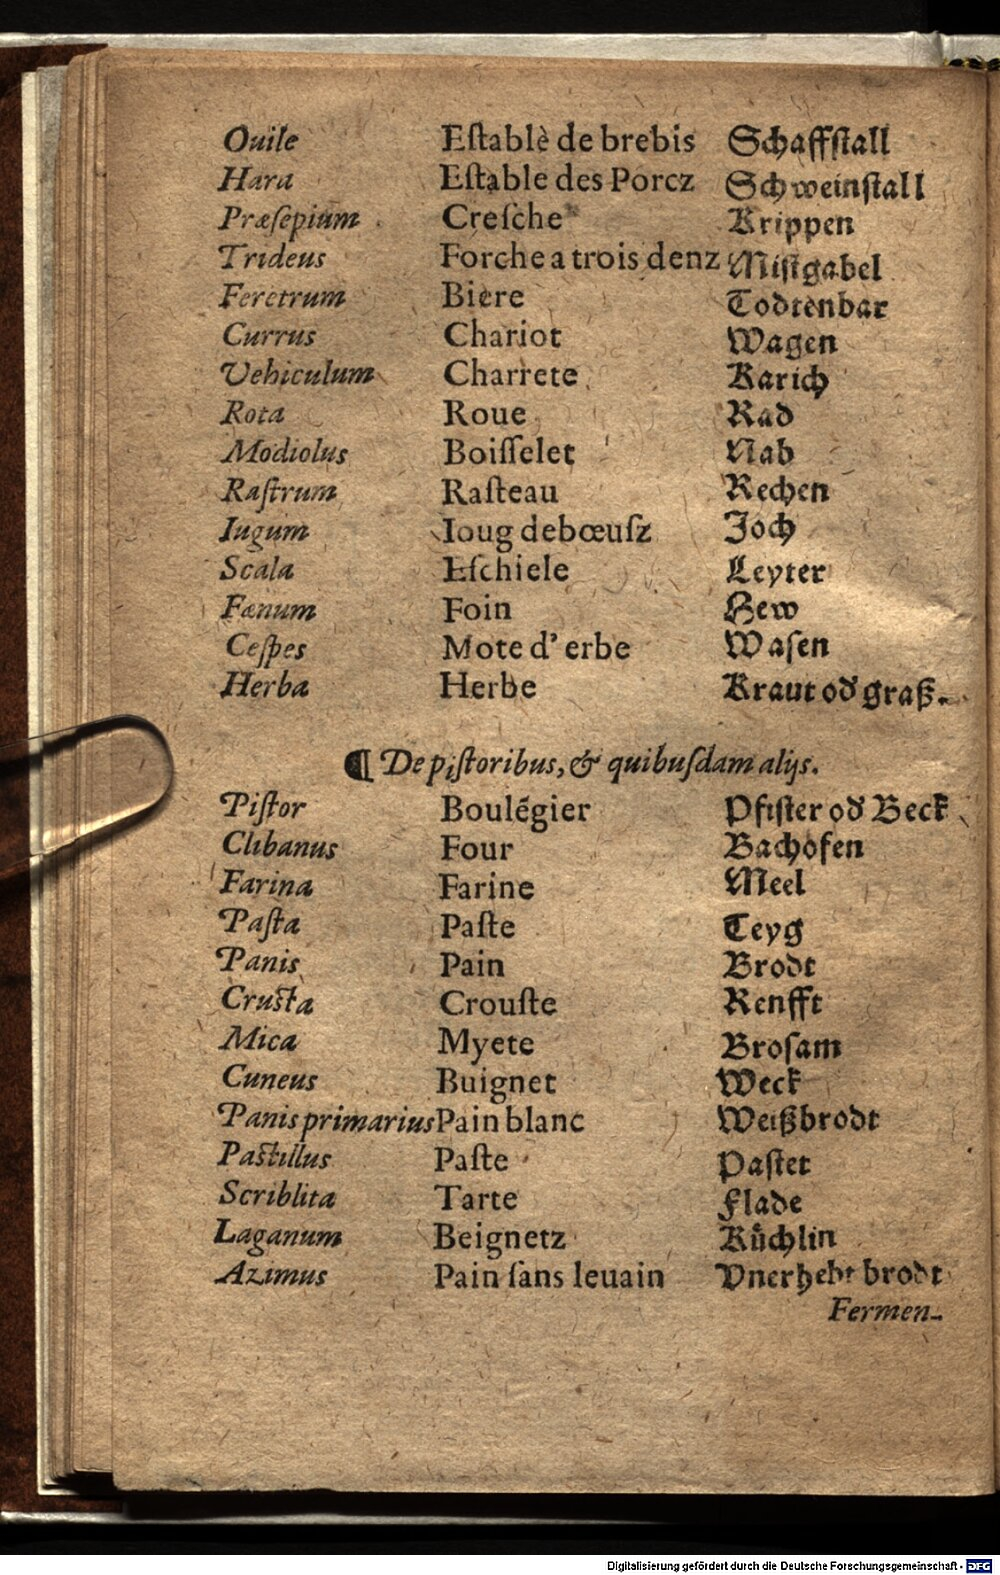 Ouile Eſtablè de brebis Schaffſtall
Hara Eſtable des Porcz Schweinſtall
Præſepium Creſche Krippen
Trideus Forche a trois denz Miſtgabel
Feretrum Biere Todtenbar
Currus Chariot Wagen
Vehiculum Charrete Karich
Rota Roue Rad
Modiolus Boiſſelet Nab
Raſtrum Raſteau Rechen
Iugum Ioug debœuſz Joch
Scala Eſchiele Leyter
Fœnum Foin Hew
Ceſpes Mote d' erbe Waſen
Herba Herbe Kraut od graß.
¶ De piſtoribus, & quibuſdam alijs.
Piſtor Boulégier Pfiſter od Beck
Clibanus Four Bachofen
Farina Farine Meel
Paſta Paſte Teyg
Panis Pain Brodt
Cruſta Crouſte Renfft
Mica Myete Broſam
Cuneus Buignet Weck
Panis primarius Pain blanc Weißbrodt
Paſtillus Paſte Paſtet
Scriblita Tarte Flade
Laganum Beignetz Kůchlin
Azimus Pain ſans leuain Vnerhebt brodt
Fermen-
Digitalisierung gefördert durch die Deutsche Forschungsgemeinschaft - DFG